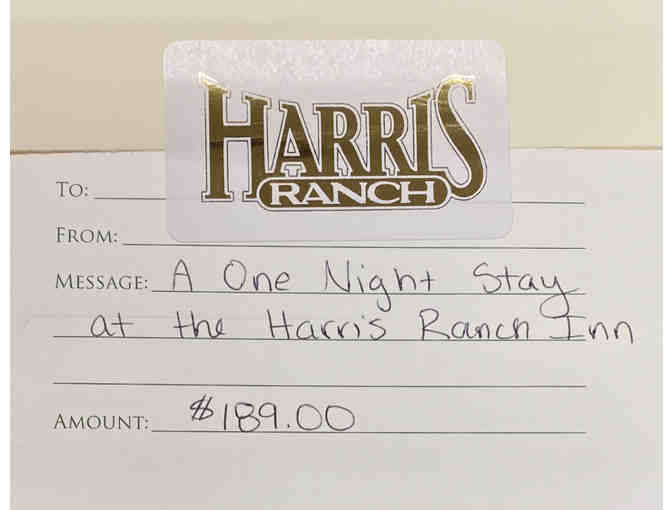 HARRIS
RANCH
TO:
FROM:
MESSAGE: A One Night Stay
at the Harris Ranch Inn
AMOUNT: $189.00